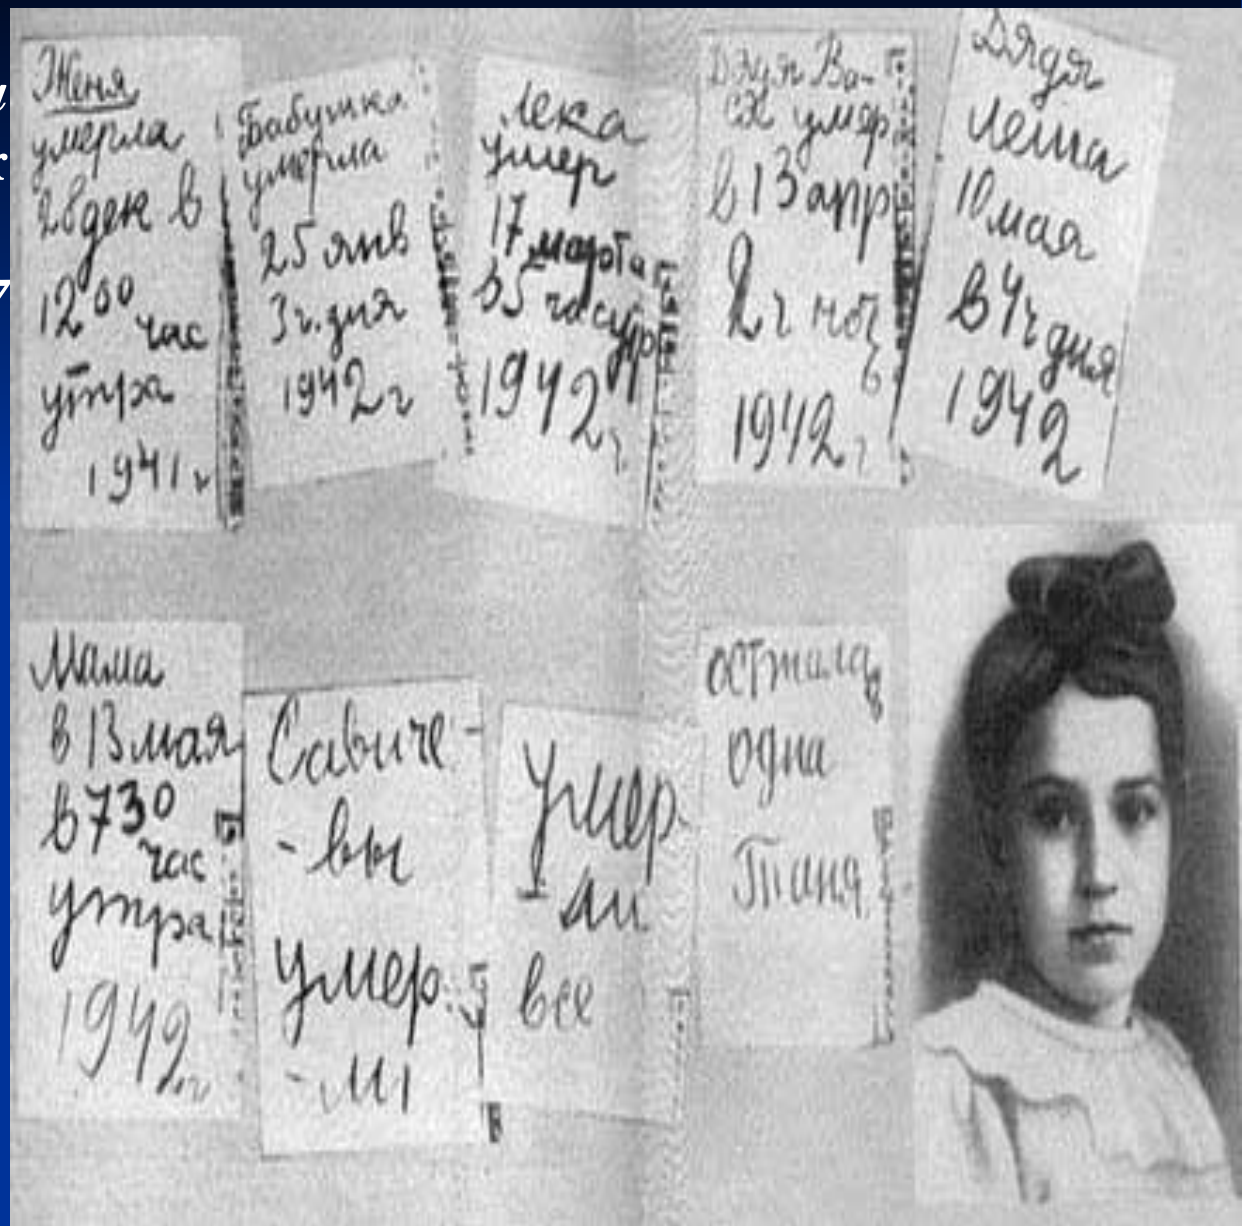 Женя
умерла
28 дек в
12 00 час
утра
1941 г
Бабушка
умерла
25 янв
3 ч. дня
1942 г
Лека
умер
17 марта
в 5 час утр
1942 г
Дядя Ва-
ся умер
в 13 апр
2 ч ночь
1942 г
Дядя
Леша
10 мая
в 4 ч дня
1942
Мама
в 13 мая
в 730 час
утра
1942 г
Савиче-
-вы
умер
-ли
Умер
-ли
все
осталась
одна
Таня